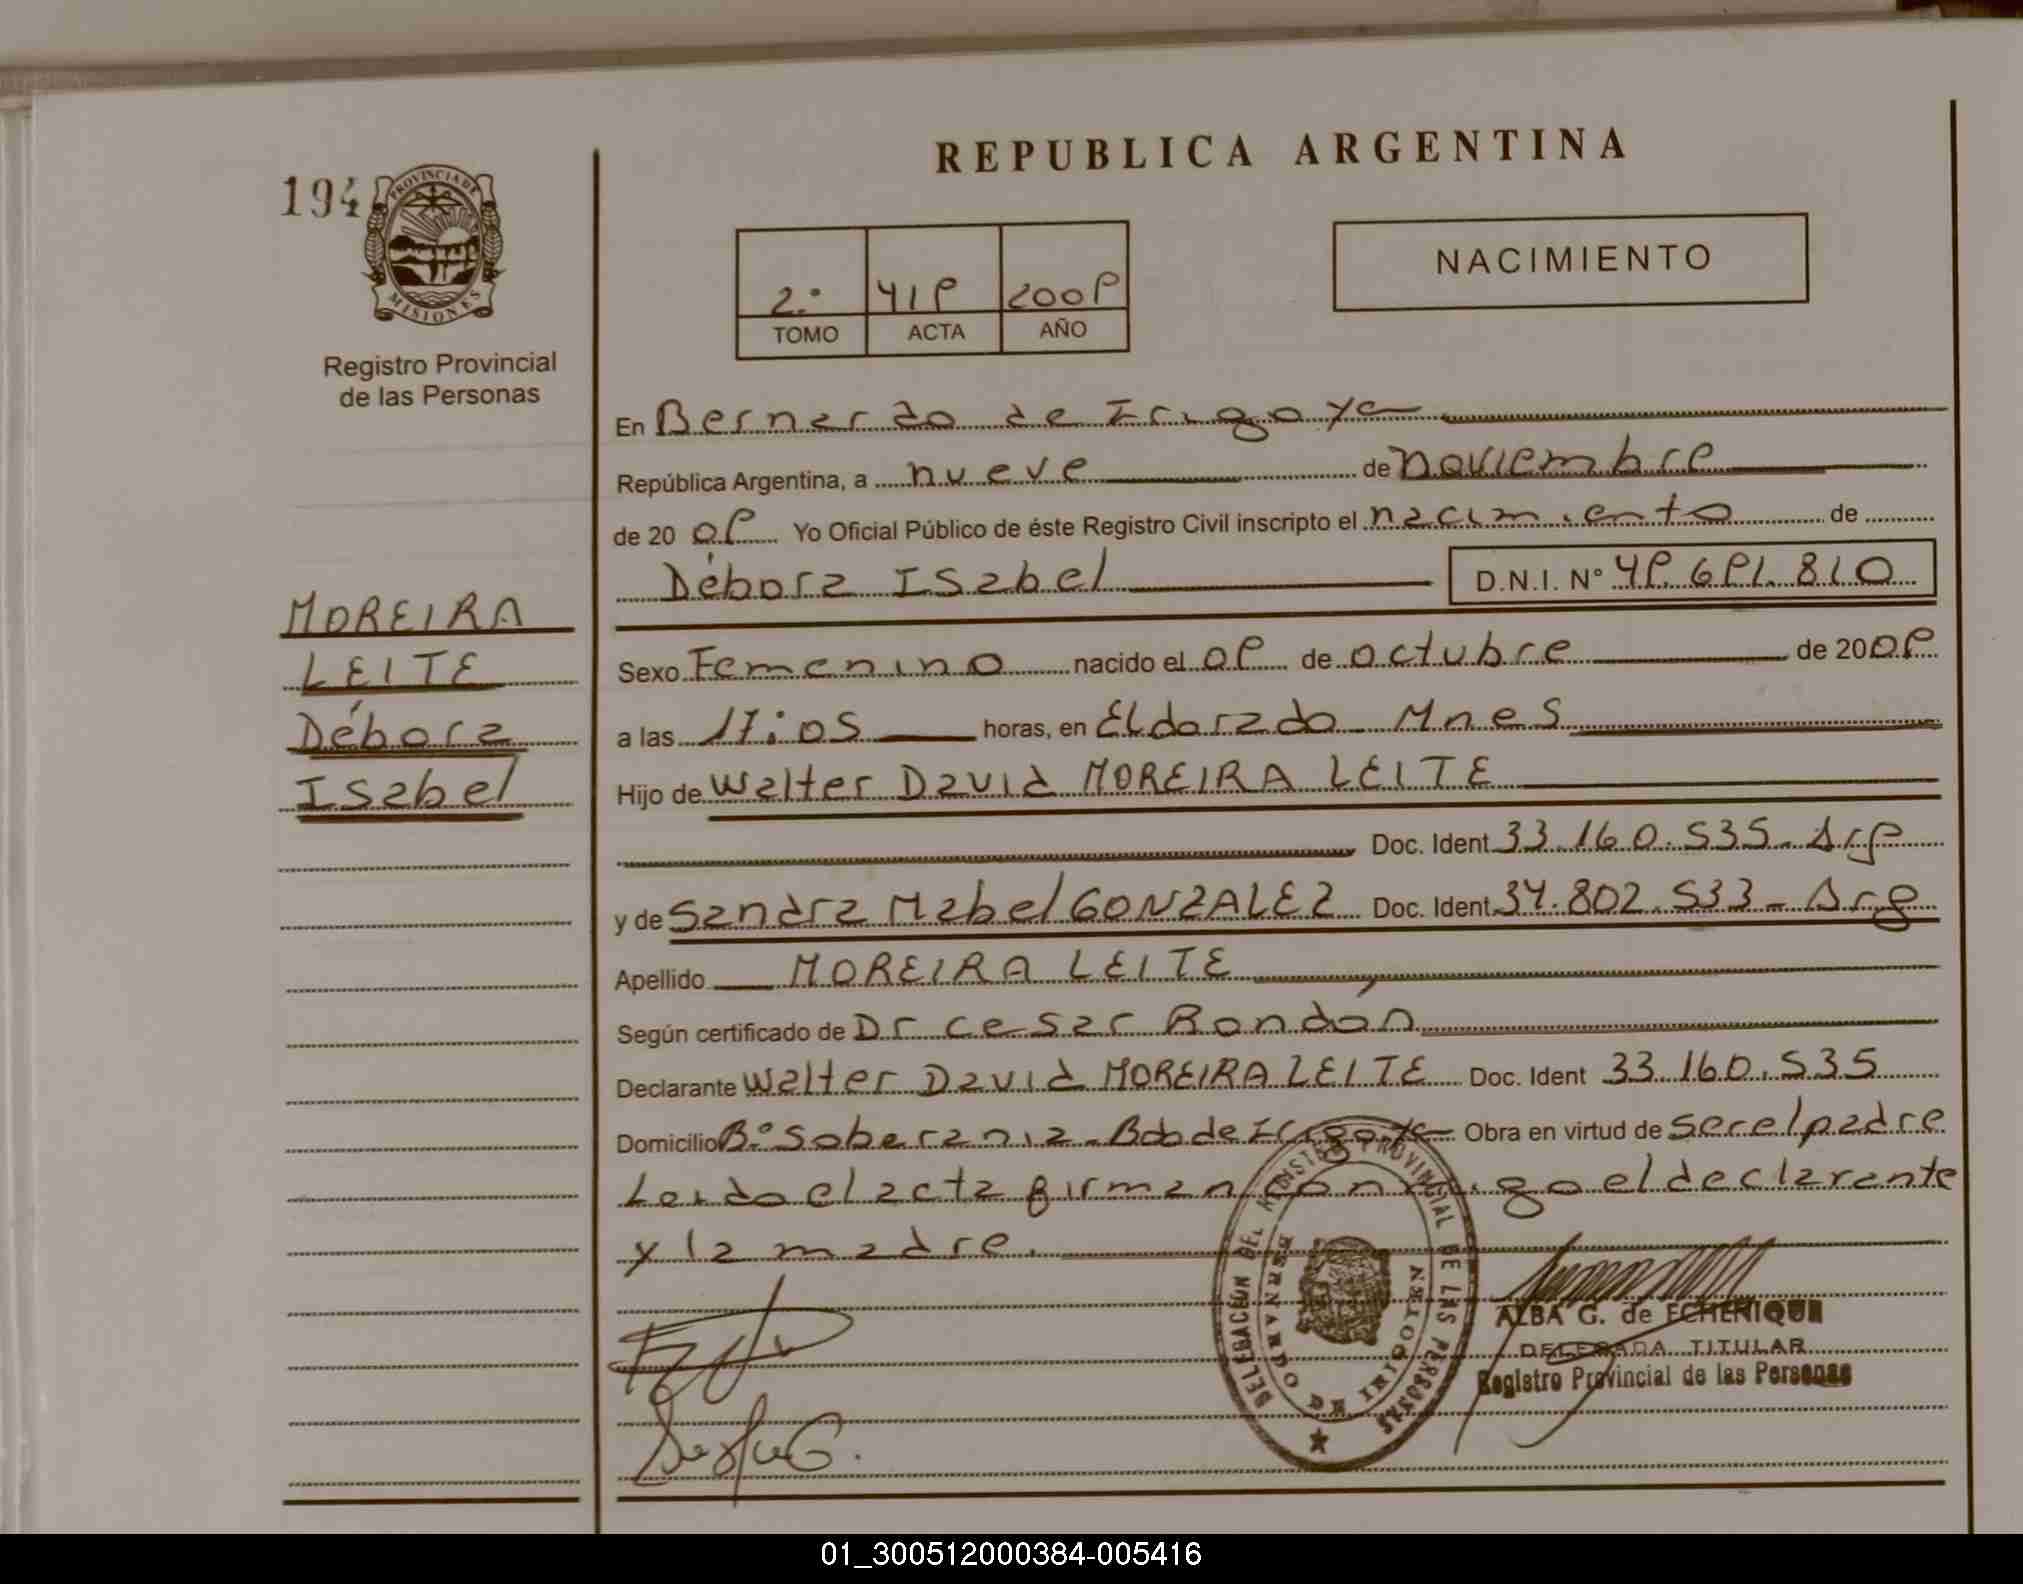 REPUBLICA ARGENTINA
194
PROVINCIA DE
MISIONES
Registro Provincial
de las Personas
2.° 419 2009
TOMO ACTA AÑO
NACIMIENTO
En Bernardo de Irigoye
República Argentina, a nueve de noviembre
de 20 09 Yo Oficial Público de éste Registro Civil inscripto el nacimiento de
Débora Isabel D.N.I. N° 49.691.810
MOREIRA
LEITE
Débora
Isabel
Sexo Femenino nacido el 09 de octubre de 2009
a las 17:05 horas, en Eldorado Mnes
Hijo de Walter David MOREIRA LEITE
Doc. Ident 33.160.535-Arg
y de Sandra Mabel GONZALEZ Doc. Ident 34.802.533-Arg
Apellido MOREIRA LEITE
Según certificado de Dr Cesar Rondón
Declarante Walter David MOREIRA LEITE Doc. Ident 33.160.535
Domicilio B° Soberania-Bdo de Irigoye Obra en virtud de ser el padre
Leido el acta firman conmigo el declarante
y la madre.
DELEGACION DEL REGISTRO PROVINCIAL DE LAS PERSONAS
BERNARDO DE IRIGOYEN
ALBA G. de ECHENIQUE
DELEGADA TITULAR
Registro Provincial de las Personas
01_300512000384-005416